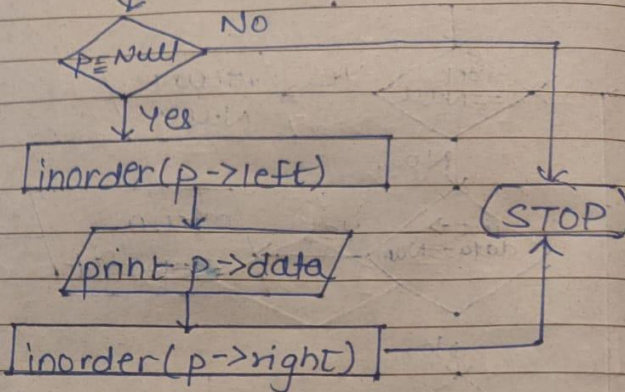 No
P≡Null
Yes
inorder(p->left)
STOP
print p->data
inorder(p->right)